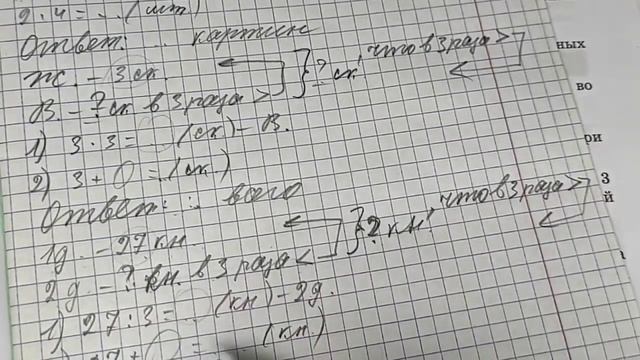 2 · 4 = ... (шт.)
Ответ: ... картинк
Ж. – 3 ск.
В. – ? ск. в 3 раза > } ? ск! что в 3 раза >
1) 3 · 3 = ... (ск) – В.
2) 3 + ... = (ск.)
Ответ: ... всего
1д. – 27 кн.
2д. – ? кн. в 3 раза < } ? кн! что в 3 раза >
1) 27 : 3 = ... (кн) – 2д.
27 + ... = ... (кн.)
ных
во
ри
3
й